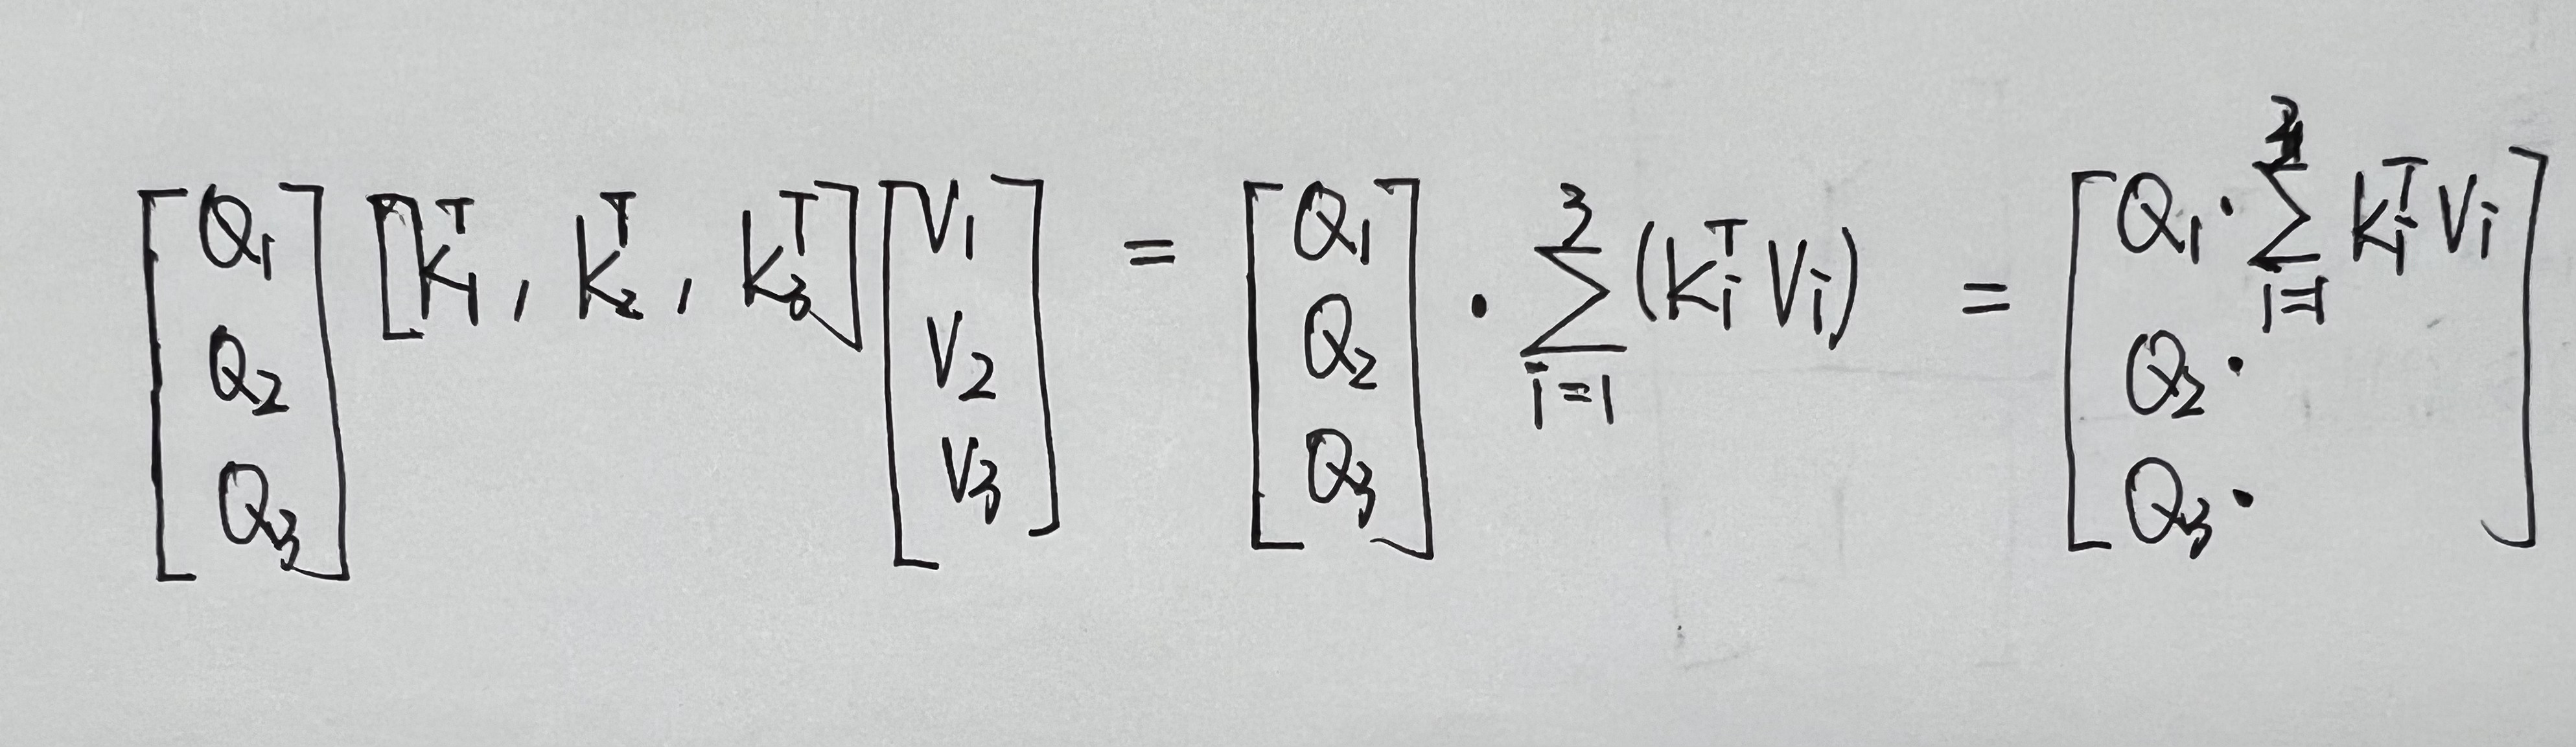 [Q1 Q2 Q3] [K1^T, K2^T, K3^T] [V1 V2 V3] = [Q1 Q2 Q3] · ∑_{i=1}^{3} (Ki^T Vi) = [Q1 · ∑_{i=1} Ki^T Vi Q2 · Q3 ·]